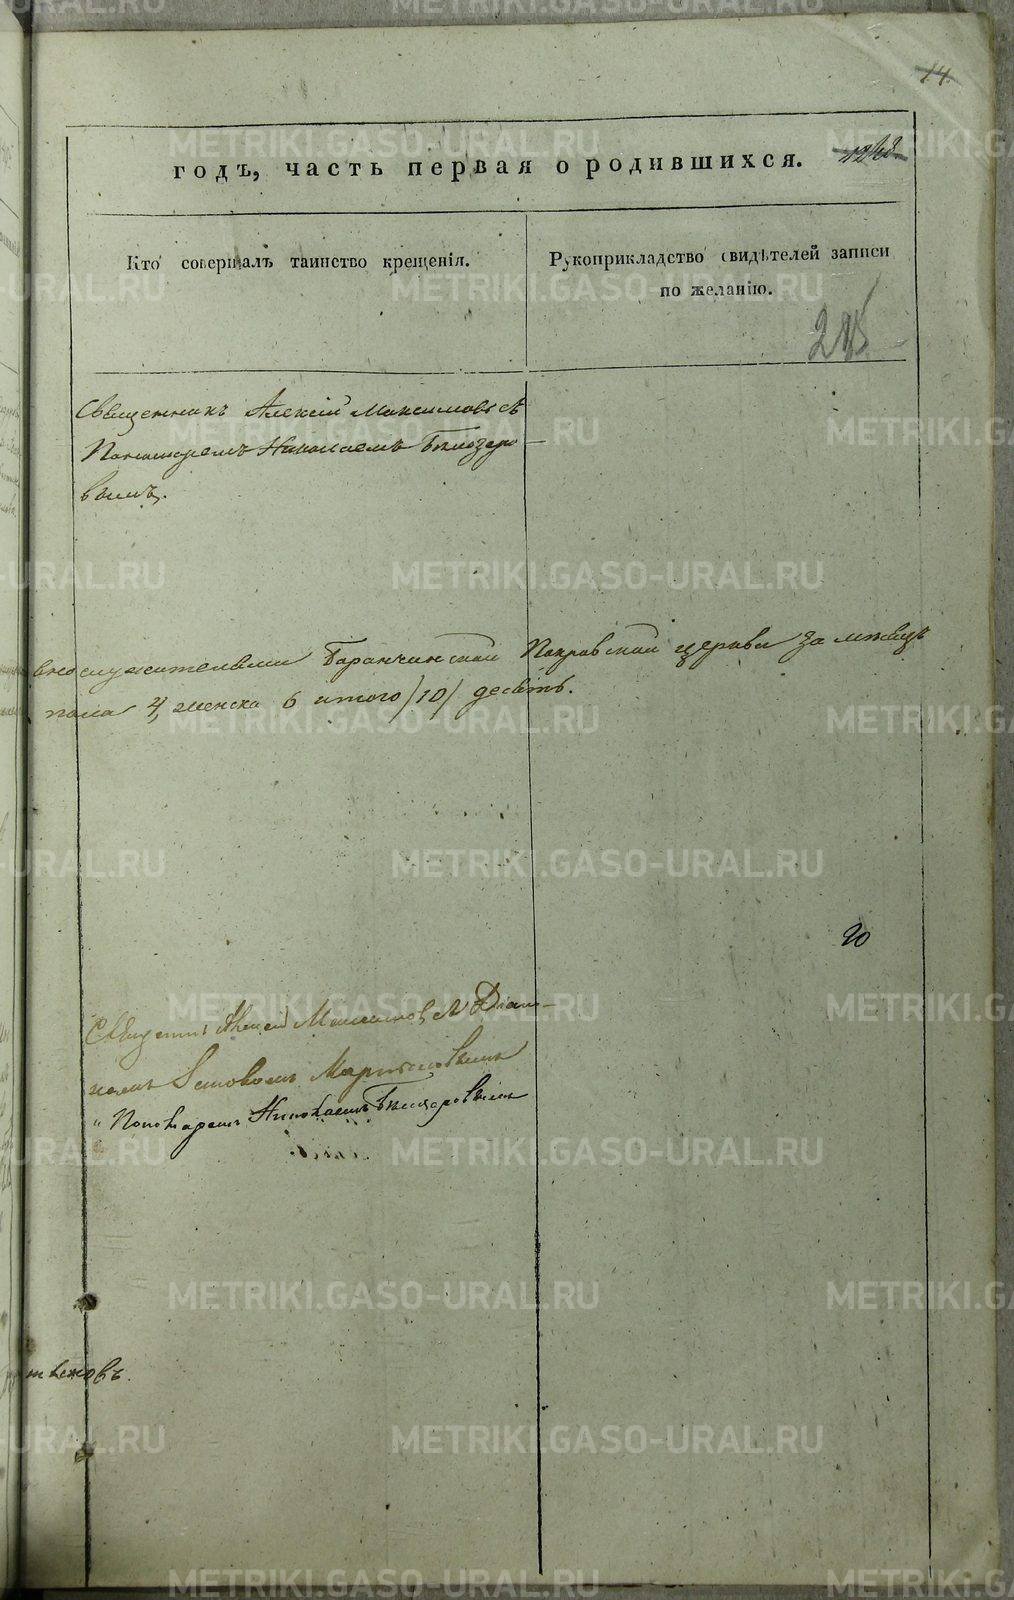 14.
годъ, часть первая о родившихся.
Кто совершалъ таинство крещенія.
Рукоприкладство свидѣтелей записи
по желанію.
Священникъ Алексій Максимовъ съ
Пономаремъ Николаемъ Бѣлозеро
вымъ.
служителями Баранчинской Покровской церкви за мѣсяцъ
пола 4, женска 6 итого /10/ десять.
20
Священникъ Алексій Максимовъ Діако
номъ Мартыновымъ
Пономаремъ Николаемъ Бѣлозеровымъ
METRIKI.GASO-URAL.RU